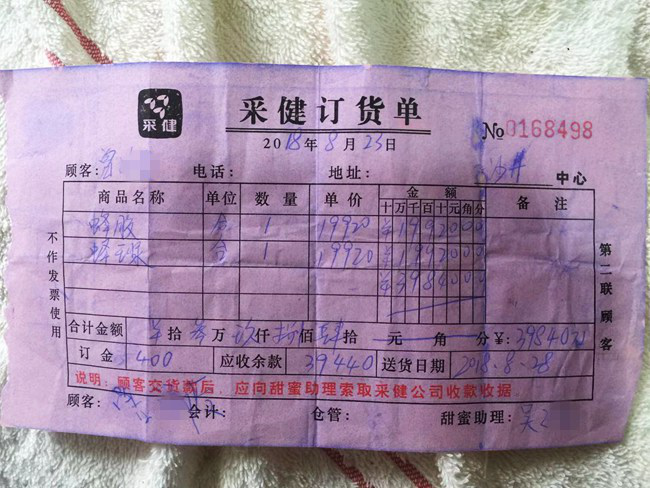 采健
采健订货单
2018年8月23日
№0168498
顾客: 电话: 地址: 沙井 中心
商品名称 单位 数量 单价 金额 备注
十万千百十元角分
蜂胶 盒 1 19920 ¥1992000
盒 1 19920 ¥1992000
¥3984000
合计金额 拾叁万玖仟捌佰肆拾元角分¥:
订金 400 应收余款 39440 送货日期 2018.8.28
说明:顾客交货款后,应向甜蜜助理索取采健公司收款收据.
顾客: 会计: 仓管: 甜蜜助理:吴
不作发票使用
第二联顾客